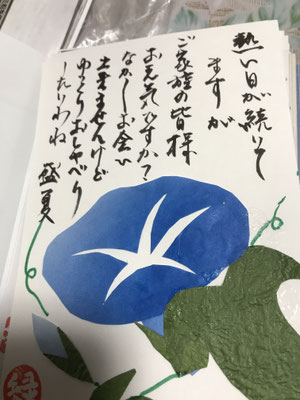 熱い日が続いて
ますが
ご家族の皆様
お元気ですか?
なかしお会い
出来ませんけど
ゆっくりおしゃべり
したいわね
盛夏